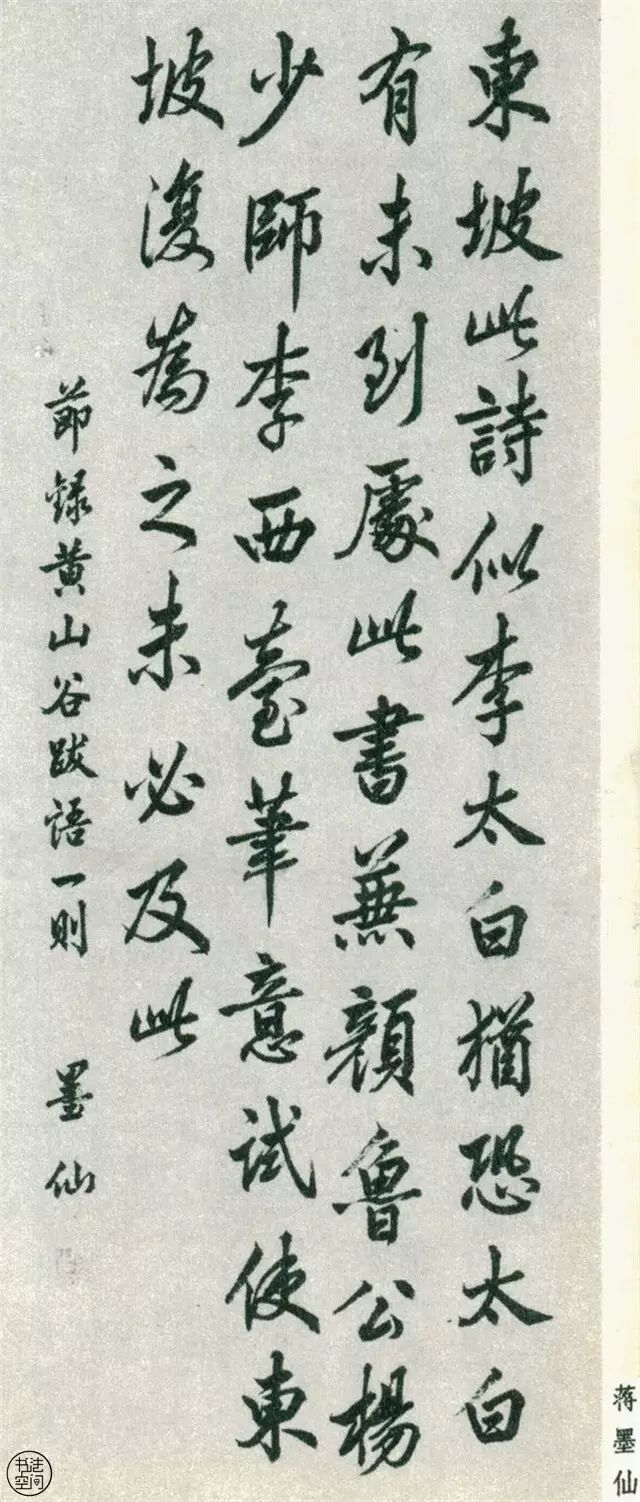 東坡此詩似李太白猶恐太白
有未到處此書兼顏魯公楊
少師李西臺筆意試使東
坡復為之未必及此
節錄黄山谷跋語一則 墨仙
蒋墨仙
书法空间